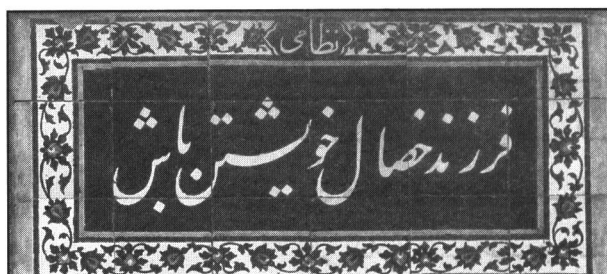 نظامی
فرزند خصال خویشتن باش